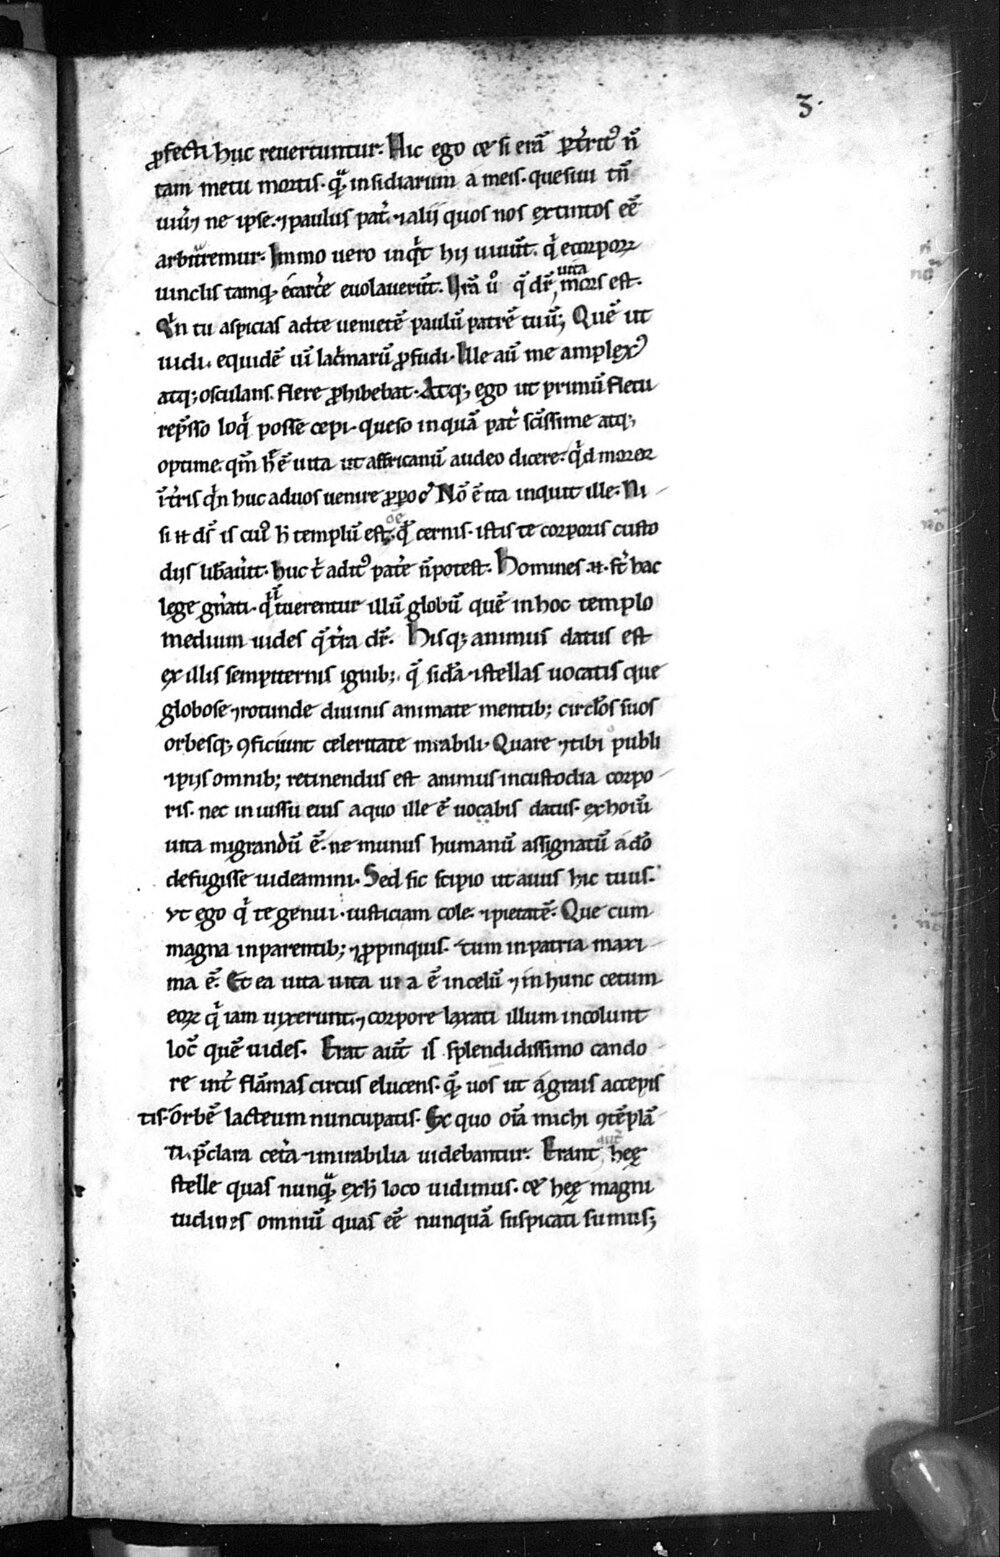 3.
ꝓfecti huc reuertuntur. Hic ego &e si erā ꝑt̓rit᷒ n̄
tam metu mortis. qᷓ insidiarum a meis. quesiui tn̄
uiu̓& ne ipse. ⁊ paulus pat̓. ⁊ alij quos nos extintos eē
arbit̓remur. Immo uero inqͥt hij uiuūt. qͥ ecorpoꝝ
uinclis tamq̨ ecarc̓e euolauer̄t. Ur̄a u̓o q̄ dr̄ uita mors est.
Qͥn tu aspicias adte uenietē paulū patrē tuū; Quē ut
uidi. equidē uī lac̓marū ꝓfudi. Ille aū me amplex᷒
atq; osculans. flere ꝓhibebat. Atq; ego ut primū fletu
rep̄sso loqͥ posse cepi. queso inquā pat̓ sc̄issime atq;
optime. qm̄ h̄ ē uita ut affricanū audeo dicere. qͥd moror
īt̓ris qͥn huc aduos uenire ꝓpo Nō ē ita inquit ille. Ni
si n̄ ds̄ is cui᷒ h̄ templū est. oē qd̄ cernis. istis te corporis custo
dijs lib̓auit. huc t̓ adit᷒ pat̓e n̄ potest. Homines n̄. st̓ hac
lege gn̓ati. qͥ tuerentur illū globū quē inhoc templo
medium uides q̄ t̓ra dr̄. Hisq; animus datus est
ex illis sempiternis ignib;. q̄ sid̓a ⁊ stellas uocatis que
globose ⁊ rotunde diuinis animate mentib; circl̓os suos
orbesq; ꝯficiunt celeritate mirabili. Quare ⁊ tibi publi
⁊ pijs omnib; retinendus est animus incustodia corpo
ris. nec iniussu eius aquo ille ē uocabis datus. ex hoīū
uita migrandū ē. ne munus humanū assignatū a do̓
defugisse uideamini. Sed sic scipio ut auus hic tuus.
vt ego qͥ te genui. iusticiam cole. ⁊ pietatē. Que cum
magna inparentib; ⁊ ꝓpinquis. tum inpatria maxi
ma ē. Et ea uita uia ē incelū ⁊ in hunc cetum
eoꝝ qͥ iam uixerunt. ⁊ corpore laxati illum incolunt
loc̄ quē uides. Erat aūt is splendidissimo cando
re int̓ flāmas circus elucens. qᷓ uos ut agrais accepis
tis. orbē lacteum nuncupatis. Ex quo oīa michi ꝯtēplā
ti. p̄clara cet̓a ⁊ mirabilia uidebantur. Erant aut̄ hee
stelle quas nunqᷓ exh̄ loco uidimus. &e hee magni
tudines omniū quas eē nunquā suspicati sumus;